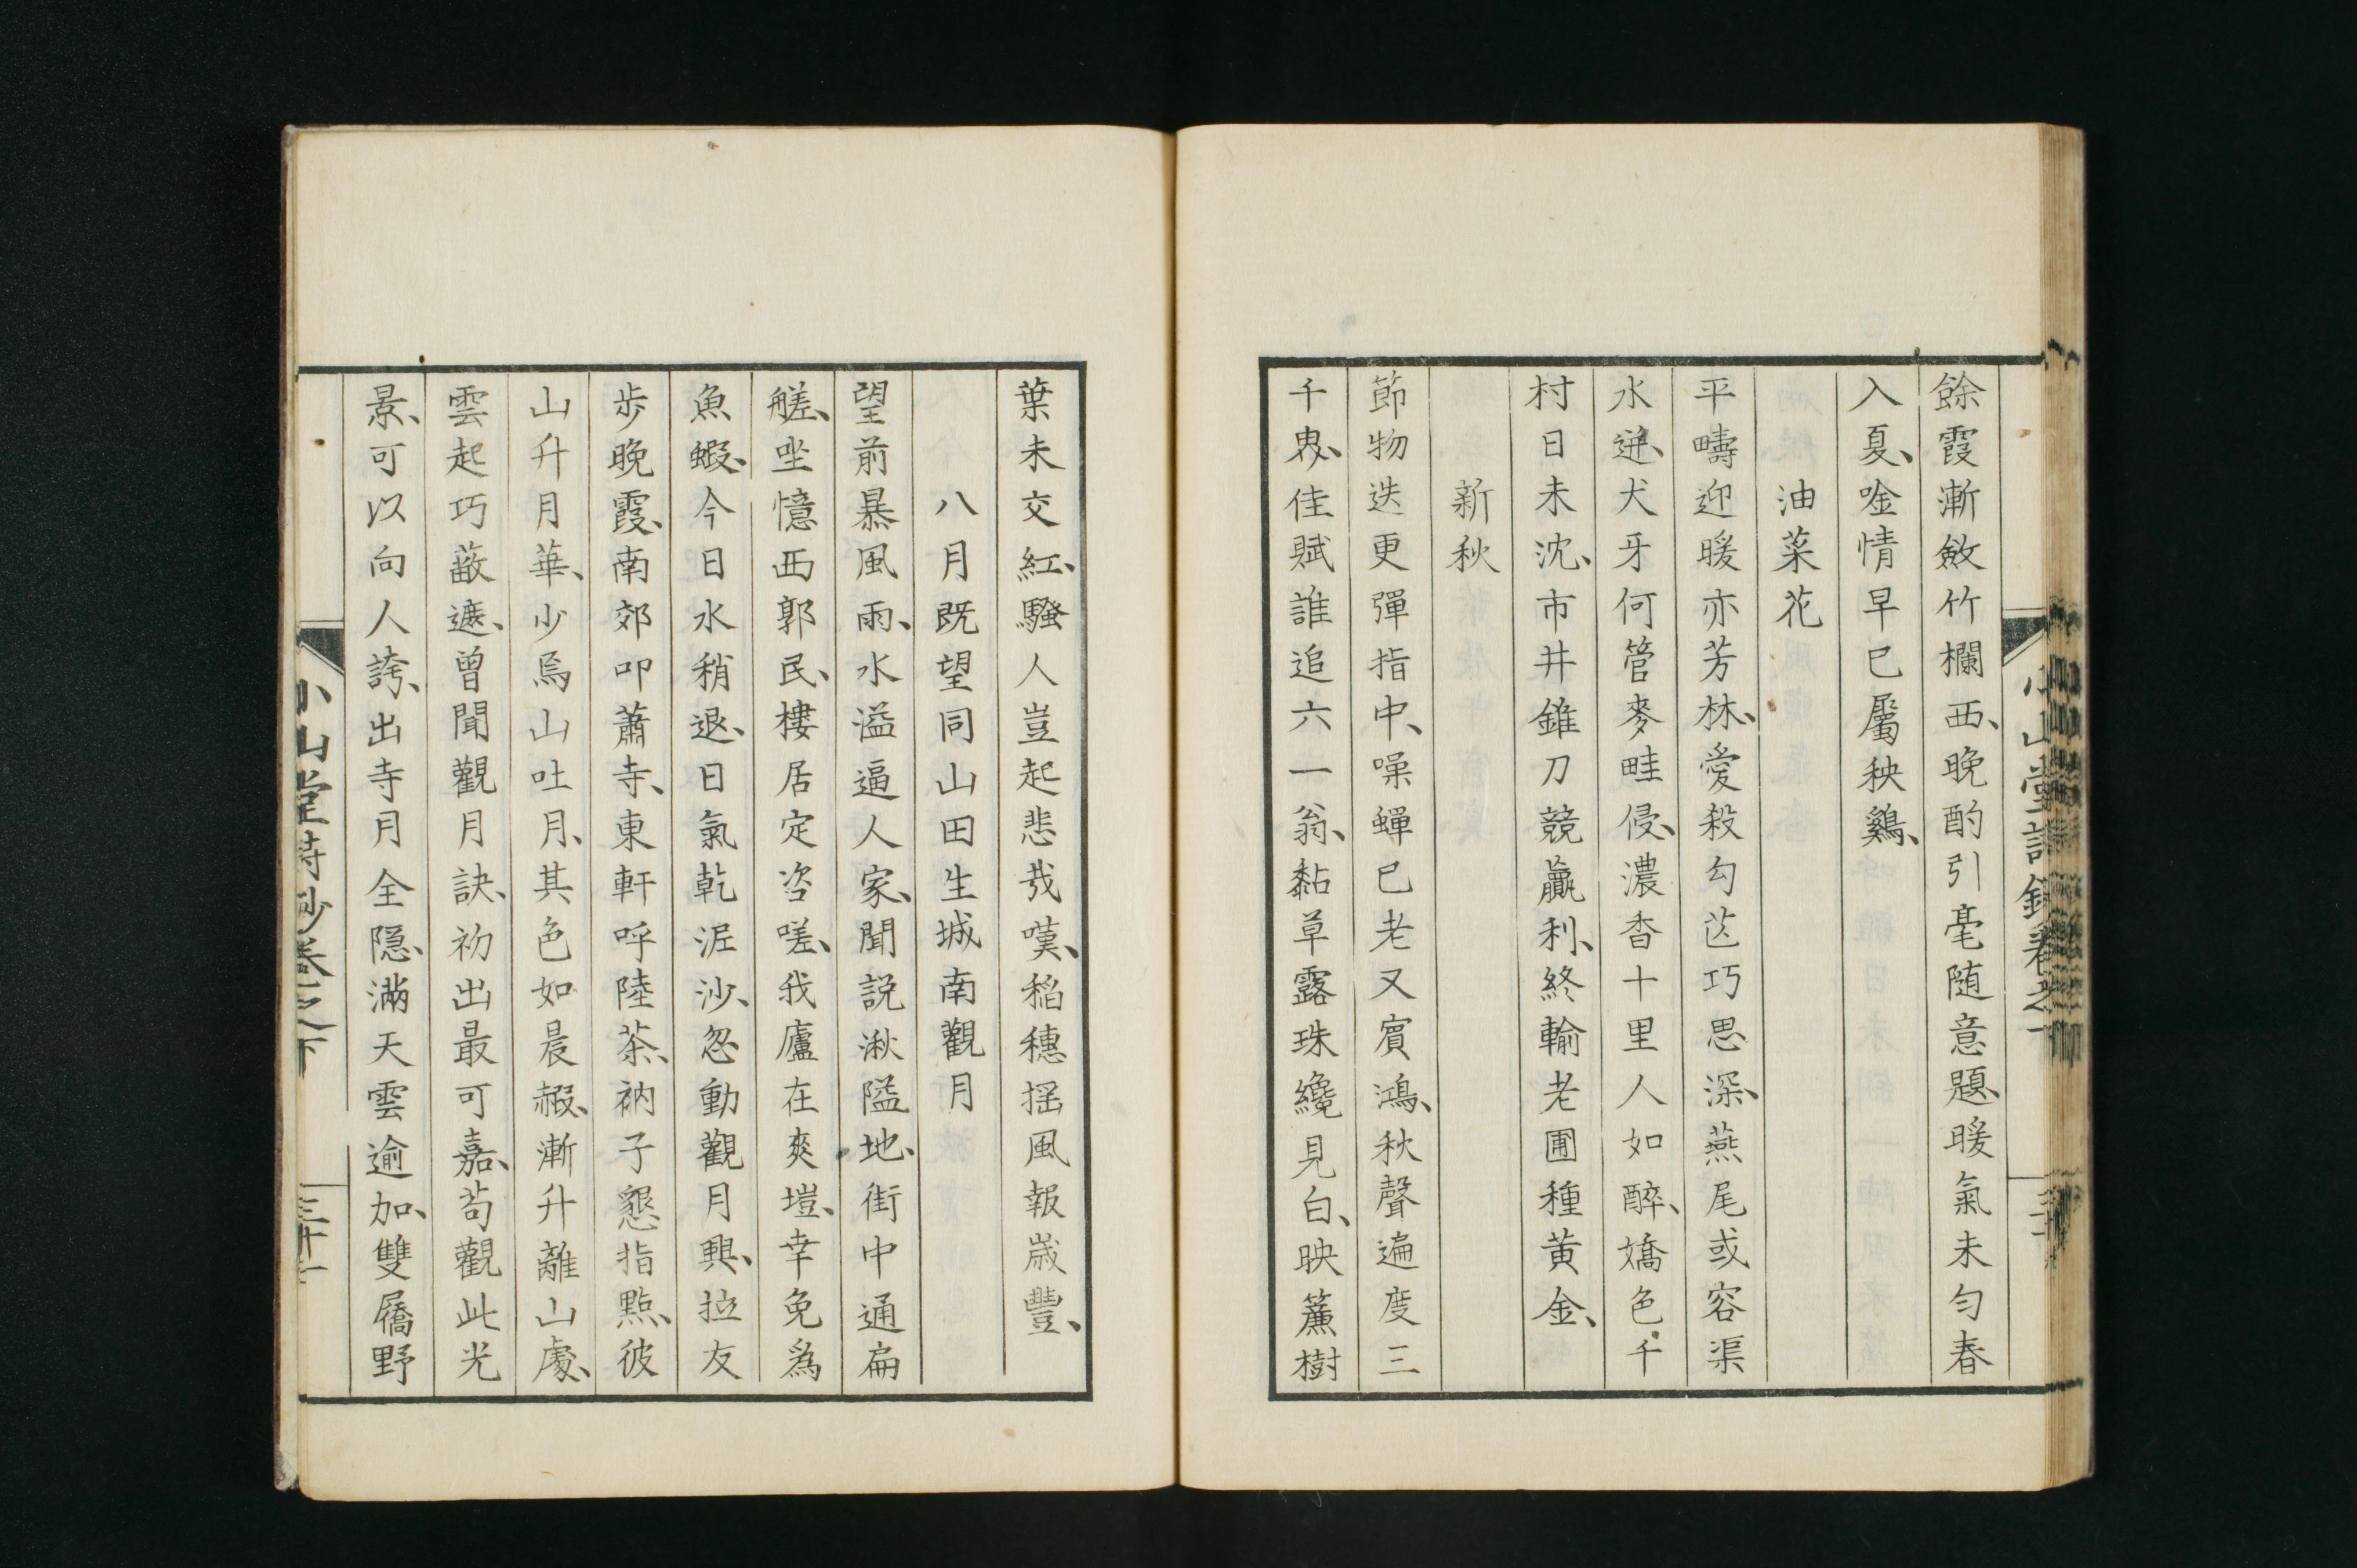 餘霞漸斂竹欄西、晚酌引毫随意題、暖氣未匀春
入夏、唫情早已屬秧鷄、
油菜花
平疇迎暖亦芳林、愛殺勾芒巧思深、燕尾或容渠
水迸、犬牙何管麥畦侵、濃香十里人如醉、嬌色千
村日未沈、市井錐刀競贏利、終輸老圃種黄金、
新秋
節物迭更彈指中、噪蟬已老又賓鴻、秋聲遍度三
千界、佳賦誰追六一翁、黏草露珠纔見白、映簾樹
葉未交紅、騷人豈起悲哉嘆、稻穗揺風報歳豐、
八月既望同山田生城南觀月
望前暴風雨、水溢逼人家、聞説湫隘地、街中通扁
艖、坐憶西郭民、樓居定咨嗟、我廬在爽塏、幸免爲
魚蝦、今日水稍退、日氣乾泥沙、忽動觀月興、拉友
歩晚霞、南郊叩蕭寺、東軒呼陸茶、衲子懇指點、彼
山升月華、少焉山吐月、其色如晨赮、漸升離山處、
雲起巧蔽遮、曾聞觀月訣、初出最可嘉、苟觀此光
景、可以向人誇、出寺月全隠、滿天雲逾加、雙屩野
小山堂詩鈔卷之下
三十一